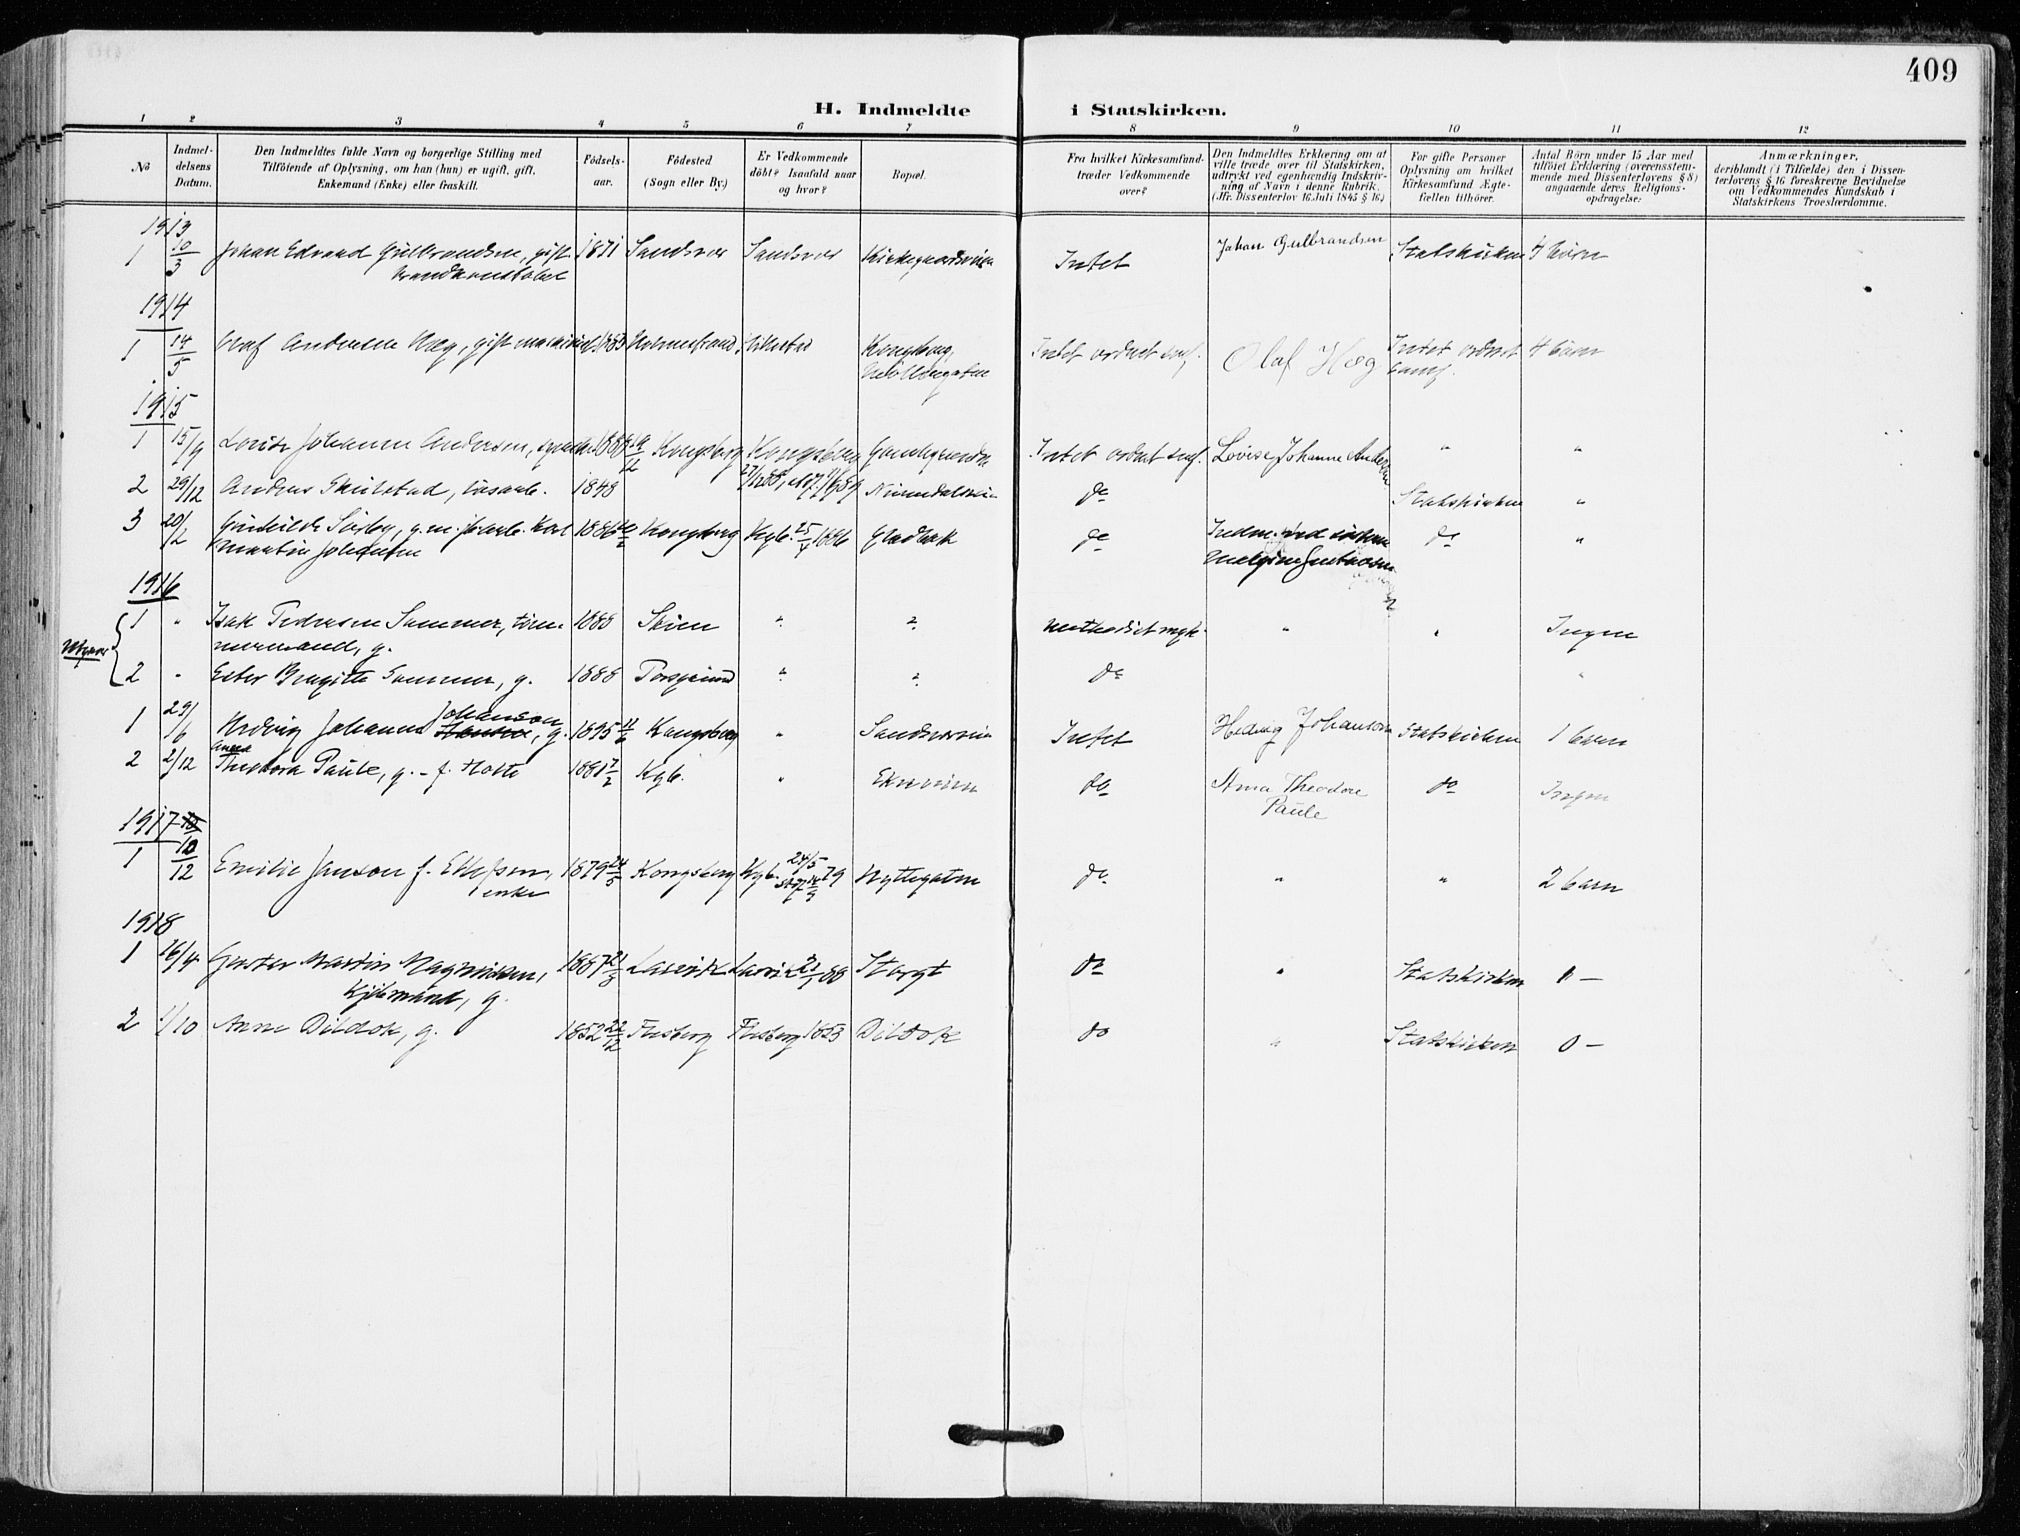 409
H. Indmeldte i Statskirken.
1 2 3 4 5 6 7 8 9 10 11 12
No
Indmel-
delsens
Datum.
Den Indmeldtes fulde Navn og borgerlige Stilling med
Tilföiende af Oplysning, om han (hun) er ugift, gift,
Enkemand (Enke) eller fraskilt.
Födsels-
aar.
Födested
(Sogn eller By.)
Er Vedkommende
döbt? Isaafald naar
og hvor?
Bopæl.
Fra hvilket Kirkesamfund
træder Vedkommende
over?
Den Indmeldtes Erklæring om at
ville træde over til Statskirken,
udtrykt ved egenhændig Indskriv-
ning af Navn i denne Rubrik.
(Jfr. Dissenterlov 16 Juli 1845 § 16.)
For gifte Personer
Oplysning om hvilket
Kirkesamfund Ægte-
fællen tilhörer.
Antal Börn under 15 Aar med
tilföiet Erklæring (overensstem-
mende med Dissenterlovens § 8)
angaaende deres Religions-
opdragelse:
Anmærkninger,
deriblandt (i Tilfælde) den i Dissen-
terlovens § 16 foreskrevne Bevidnelse
om Vedkommendes Kundskab i
Statskirkens Troeslærdomme.
1913
1 10/3 Johan Edvard Gulbrandsen, gift 1871 Sandsvær Sandsvær Kirkegaardsveien Intet Johan Gulbrandsen Statskirken 4 börn
brandkonstabel
1914
1 14/5 Olaf Andersen Hæg, gift 1883 Holmestrand Kongsberg, Intet ordnet samf. Olaf Hæg Intet ordnet 4 barn
samf.
1915
1 15/9 Lovise Johanne Andersen, 1888 19/12 Kongsberg Kongsberg Intet ordnet samf. Lovise Johanne Andersen " "
2 29/12 Andreas Skulstad, løsarb. 1848 Numedalsvein do Statskirken "
3 20/2 Gunhilde g. m. Karl 1886 Kongsberg Kgb. 25/4 1886 Gladbak do Indm. ved do "
Martin Johansen
1916
1 " Isak Pedersen Sammer, töm- 1888 Skien " " Methodist " " Ingen
mermand, g.
2 " Ester Birgitte Sammer, g. 1888 Porsgrund " " do "
1 29/6 Hedvig Johanne Johanson, g. 1895 Kongsberg " Sandsværvein Intet Hedvig Johanson Statskirken 1 barn
2 2/12 Anna Theodora Paule, g. - f. Holte 1881 7/2 Kgb. " Ekerveien do Anna Theodore do Ingen
Paule
1917
1 10/12 Emilie Janson f. Ellefsen, 1879 24/5 Kongsberg Kgb. 24/5 79 Hyttegaten do " " 2 barn
enke
1918
1 16/4 Gustav Martin Magnussen, 1887 21/3 Larvik Larvik 88 Storgt do " Statskirken 0 -
Kjöbmand, g.
2 1/10 Anne Dildok, g. 1852 22/12 Flesberg Flesberg 1853 Dildok do " Statskirken 0 -